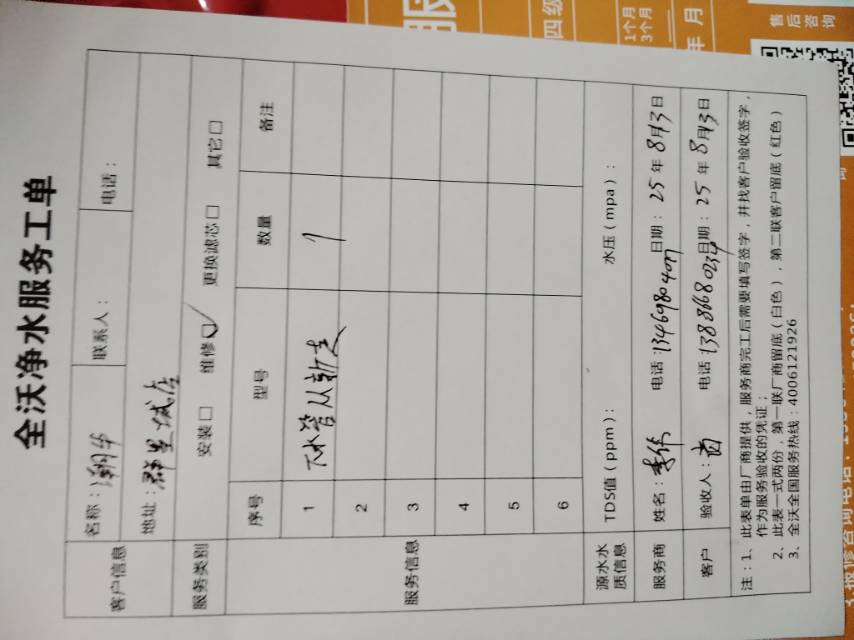 全沃净水服务工单
客户信息
名称：
联系人：
电话：
地址：群里城店
服务类别
安装□ 维修☑ 更换滤芯□ 其它□
服务信息
序号 型号 数量 备注
1 下水管从新走 1
2
3
4
5
6
源水水质信息
TDS值（ppm）： 水压（mpa）：
服务商 姓名：李伟 电话：13469804077 日期：25年8月13日
客户 验收人： 电话 1388680234 日期：25年8月13日
注：1、此表单由厂商提供，服务商完工后需要填写签字，并找客户验收签字，
作为服务验收的凭证；
2、此表一式两份，第一联厂商留底（白色），第二联客户留底（红色）
3、全沃全国服务热线：4006121926
四级
1个月
3个月
年 月
售后咨询